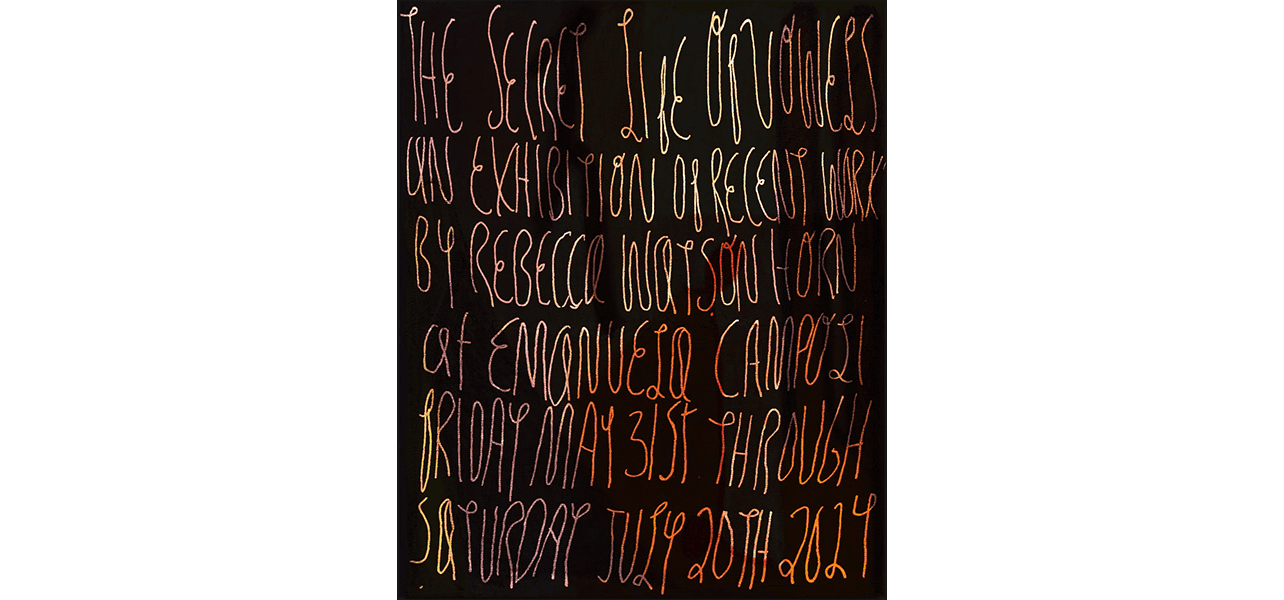 THE SECRET LIfE Of VOWELS
AN EXHIBITION Of RECENT WORK
BY REBECCA WATSON HORN
at EMANUELA CAMPOLI
fRIDAY MAY 31St THROUGH
SATURDAY JULY 20TH 2024